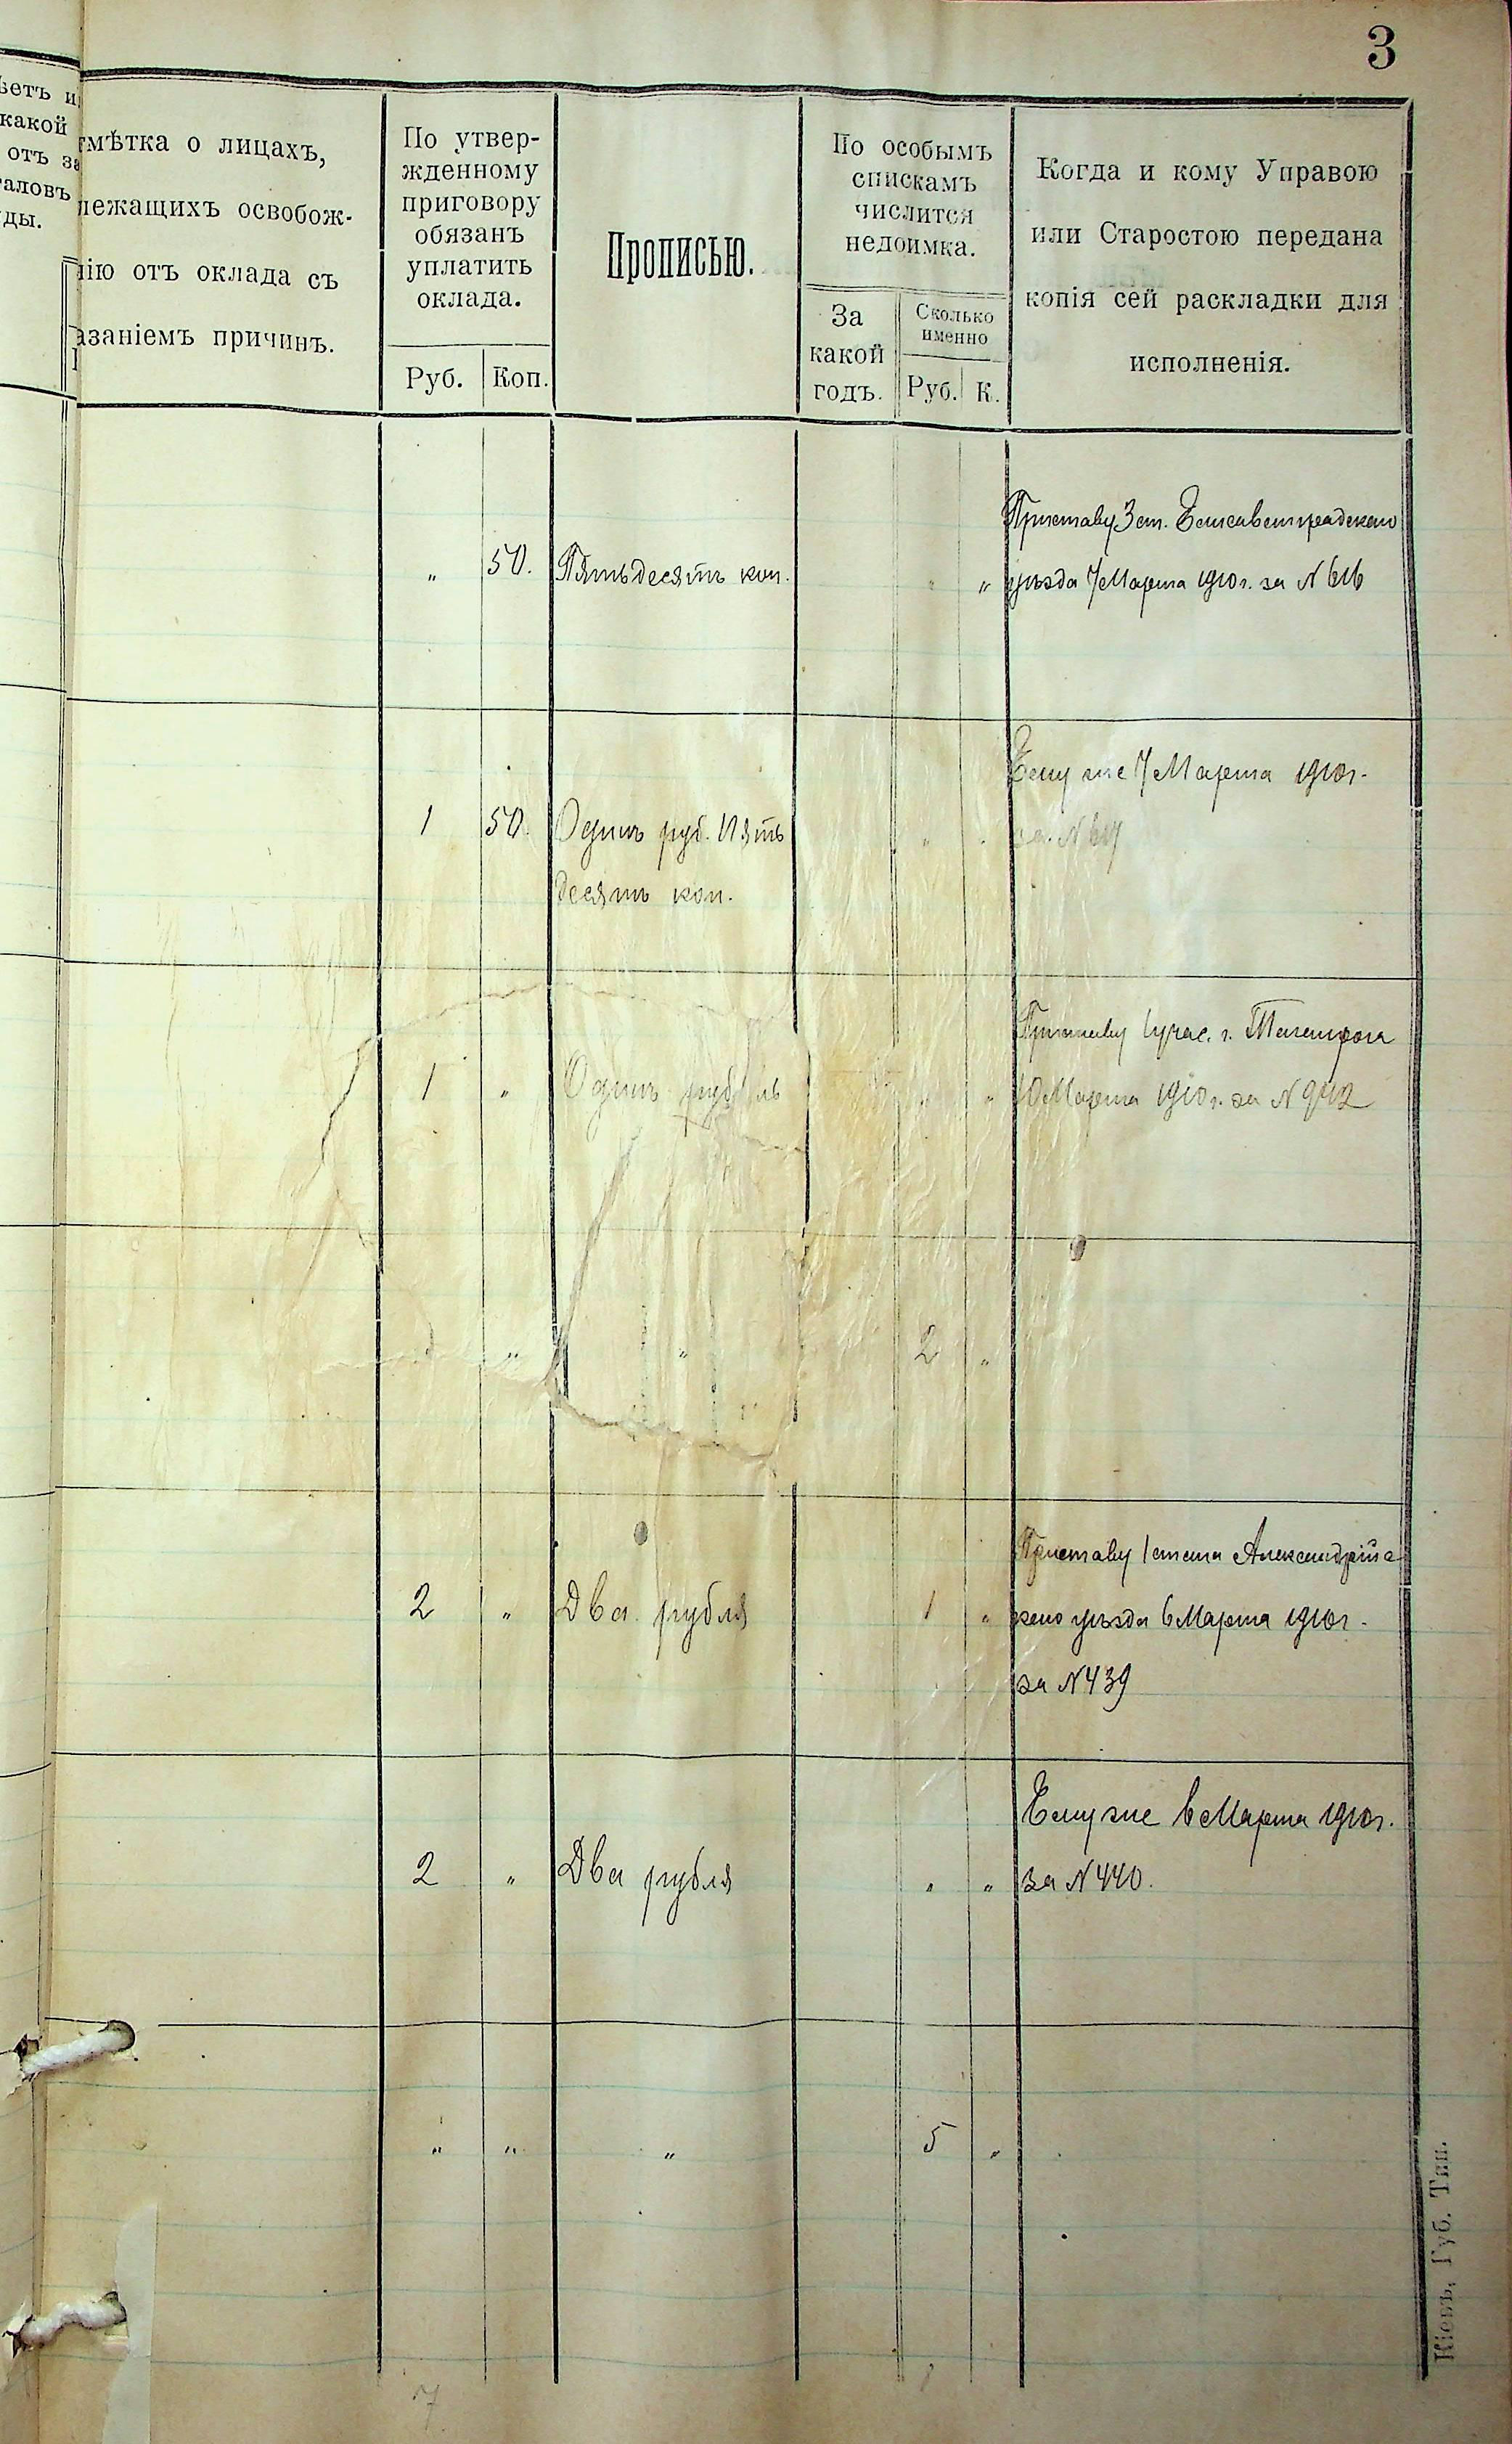 3
ѣетъ и
какой
отъ за
таловъ
ды.
тмѣтка о лицахъ,
лежащихъ освобож-
нію отъ оклада съ
азаніемъ причинъ.
По утвер-
жденному
приговору
обязанъ
уплатить
оклада.
Руб. Коп.
Прописью.
По особымъ
спискамъ
числится
недоимка.
За
какой
годъ.
Сколько
именно
Руб. К.
Когда и кому Управою
или Старостою передана
копія сей раскладки для
исполненія.
Приставу 3 ст. Елисаветградскаго
„ 50. Пятьдесятъ коп. „ „ уѣзда 7 Марта 1910 г. за № 616
Ему же 7 Марта 1910 г.
1 50. Одинъ руб. пять „ „ за №
десятъ коп.
Приставу 1 учас. г. Таганрога
1 „ Одинъ рубль „ „ 10 Марта 1910 г. за № 942
„ „ „ 2 „
Приставу 1 стана Александрій-
2 „ Два рубля 1 „ скаго уѣзда 6 Марта 1910 г.
за № 439
Ему же 6 Марта 1910 г.
2 „ Два рубля „ „ за № 440.
„ „ „ 5 „
7
Кіевъ, Губ. Тип.